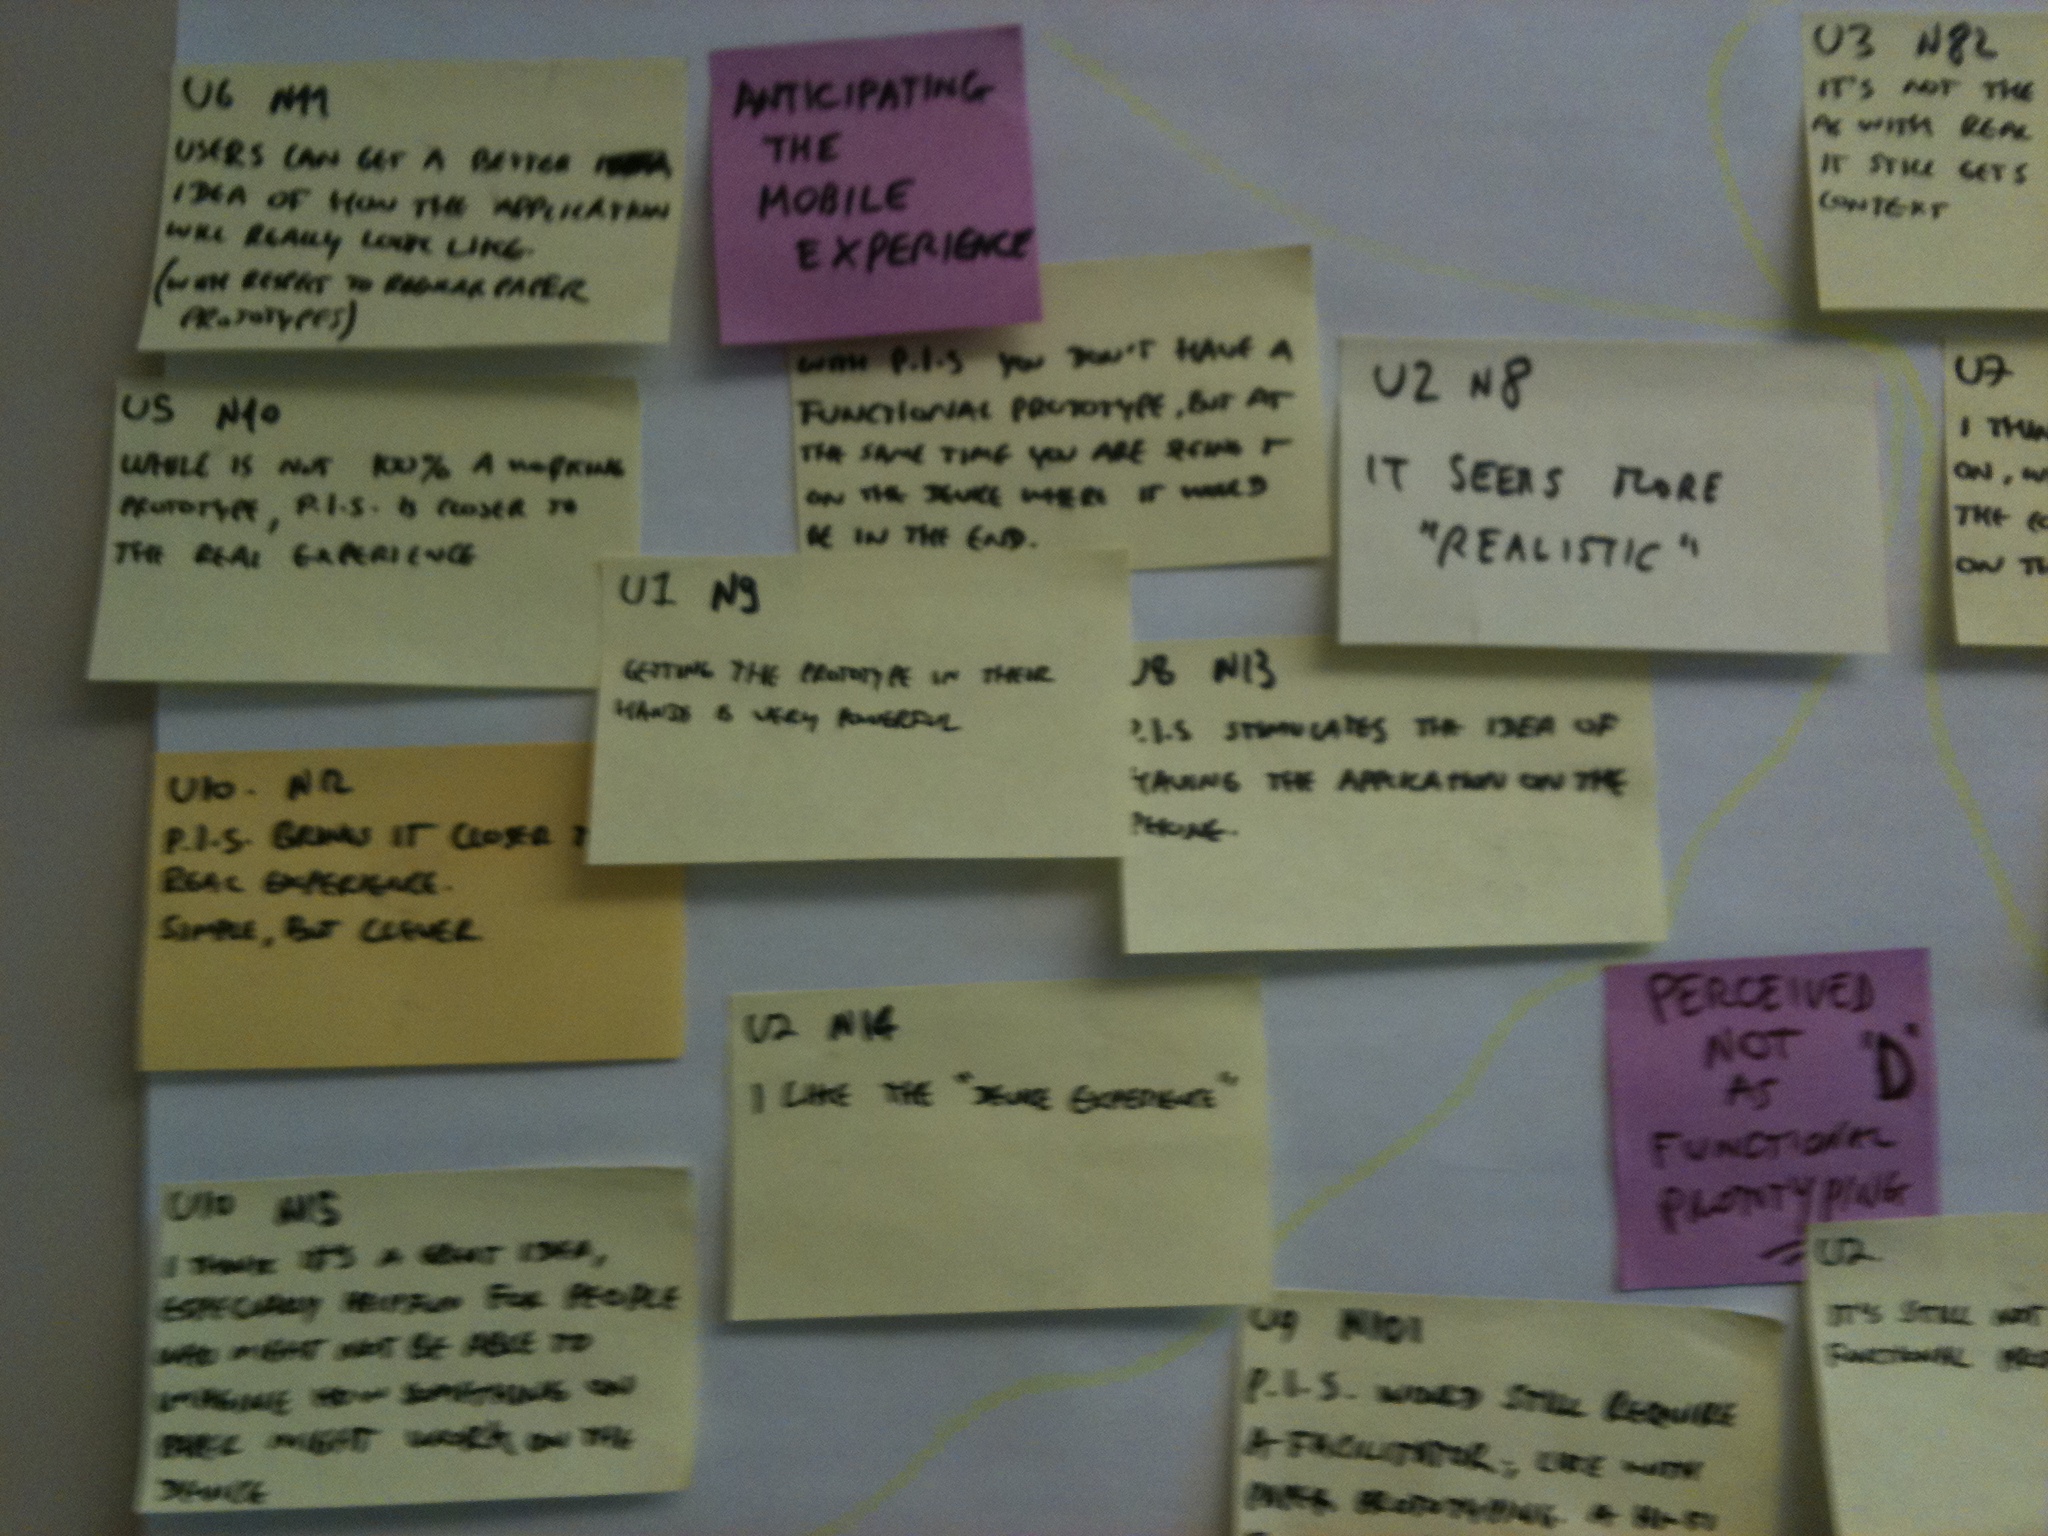 U6 N11
USERS CAN GET A BETTER
IDEA OF HOW THE APPLICATION
WILL REALLY LOOK LIKE.
(WITH RESPECT TO REGULAR PAPER
PROTOTYPES)
ANTICIPATING
THE
MOBILE
EXPERIENCE
WITH P.I.S YOU DON'T HAVE A
FUNCTIONAL PROTOTYPE, BUT AT
THE SAME TIME YOU ARE SEEING IT
ON THE DEVICE WHERE IT WOULD
BE IN THE END.
U3 N82
IT'S NOT THE
AS WITH REAL
IT STILL GETS
CONTEXT
U5 N10
WHILE IS NOT 100% A WORKING
PROTOTYPE, P.I.S. IS CLOSER TO
THE REAL EXPERIENCE
U2 N8
IT SEEMS MORE
"REALISTIC"
U7
I THIN
ON, W
THE
ON TH
U1 N9
GETTING THE PROTOTYPE IN THEIR
HANDS IS VERY POWERFUL
U8 N13
P.I.S STIMULATES THE IDEA OF
HAVING THE APPLICATION ON THE
PHONE.
U10. N12
P.I.S. BRINGS IT CLOSER
REAL EXPERIENCE.
SIMPLE, BUT CLEVER
U2 N14
I LIKE THE "DEVICE EXPERIENCE"
PERCEIVED
NOT "D"
AS
FUNCTIONAL
PROTOTYPING
U10 N15
I THINK IT'S A GREAT IDEA,
ESPECIALLY HELPFUL FOR PEOPLE
WHO MIGHT NOT BE ABLE TO
IMAGINE HOW SOMETHING ON
PAPER MIGHT WORK ON THE
DEVICE
U9 N101
P.I.S. WOULD STILL REQUIRE
A FACILITATOR, LIKE WITH
PAPER PROTOTYPING. A HI-FI
U2
IT'S STILL NOT
FUNCTIONAL PRO